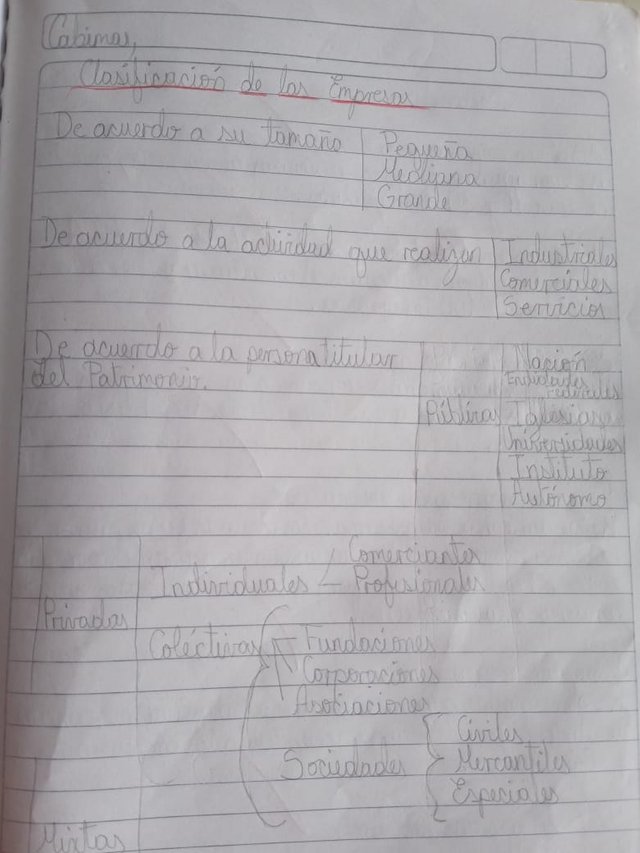 Cabimas,
Clasificación de las Empresas
De acuerdo a su tamaño
Pequeña
Mediana
Grande
De acuerdo a la actividad que realizan
Industriales
Comerciales
Servicios
De acuerdo a la persona titular
del Patrimonio.
Públicas
Nación
Entidades
Federales
Iglesias
Universidades
Instituto
Autónomo
Privadas
Individuales
Comerciantes
Profesionales
Coléctivas
Fundaciones
Corporaciones
Asociaciones
Sociedades
Civiles
Mercantiles
Especiales
Mixtas